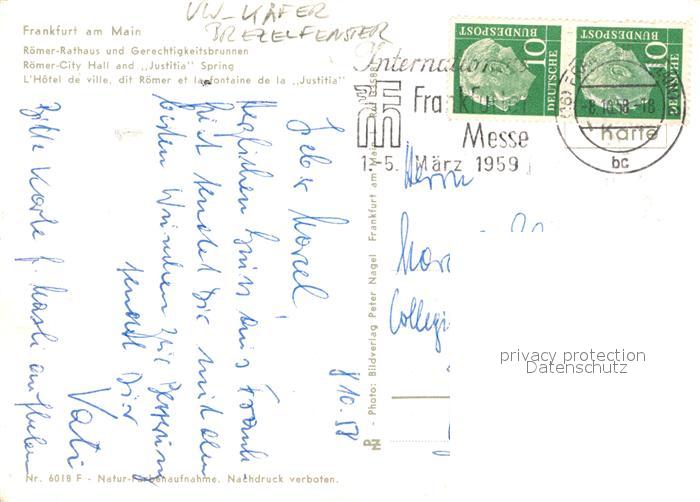 VW-KÄFER
BREZELFENSTER
Frankfurt am Main
Römer-Rathaus und Gerechtigkeitsbrunnen
Römer-City Hall and „Justitia" Spring
L'Hôtel de ville, dit Römer et la fontaine de la „Justitia"
Lieber Marcel!
Herzlichen Gruss aus Frank-
furt sendet Dir mit den
besten Wünschen
sendet Dir
Vati
Bitte Karte f. aufheben
8.10.58
Photo: Bildverlag Peter Nagel Frankfurt am Main
Nr. 6018 F - Natur-Farbenaufnahme. Nachdruck verboten.
DEUTSCHE BUNDESPOST 10
DEUTSCHE BUNDESPOST 10
Internationale
Frankfurter
Messe
1.-5. März 1959
-8.10.58-18
bc
Karte
Herrn
Mar
Collegi
privacy protection
Datenschutz